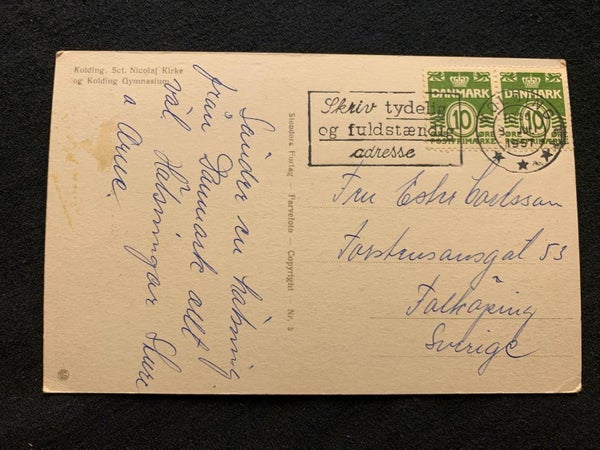 Kolding. Sct. Nicolaj Kirke
og Kolding Gymnasium
Sänder en hälsning
från Danmark allt
väl Hälsningar Sture
o Arne.
Stenders Forlag - Farvefoto - Copyright Nr. 5
Skriv tydelig
og fuldstændig
adresse
DANMARK
10
ØRE
POSTFRIMÆRKE
DANMARK
10
ØRE
POSTFRIMÆRKE
1957
Fru Ester Carlsson
53
Falköping
Sverige